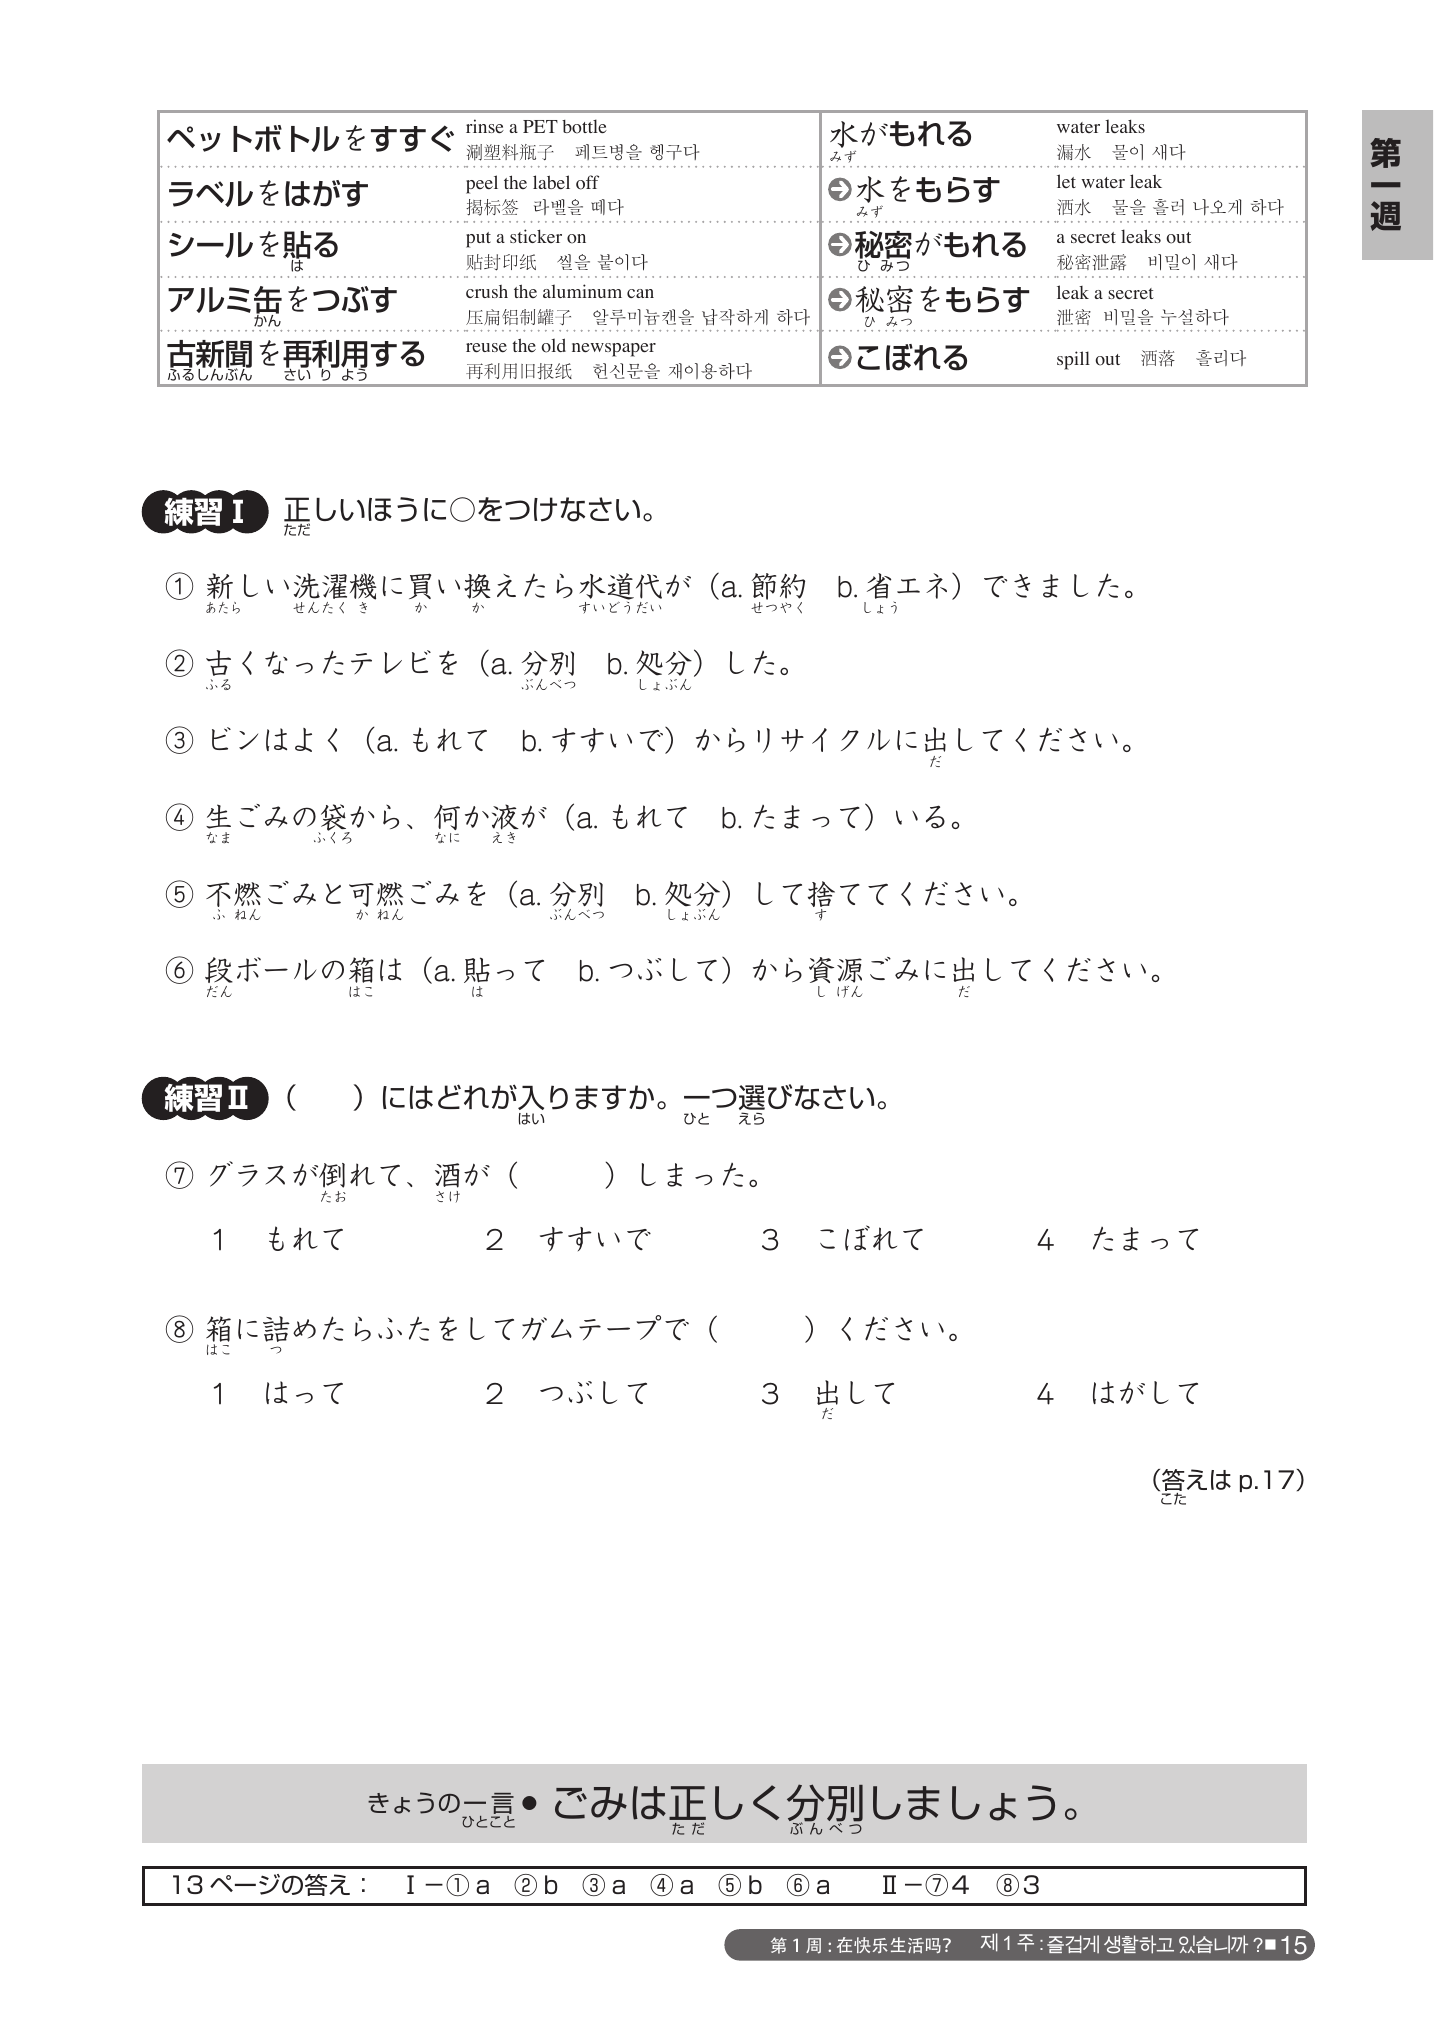 第一週
ペットボトルをすすぐ rinse a PET bottle
涮塑料瓶子 페트병을 헹구다
ラベルをはがす peel the label off
揭标签 라벨을 떼다
シールを貼る put a sticker on
は
贴封印纸 씰을 붙이다
アルミ缶をつぶす crush the aluminum can
かん
压扁铝制罐子 알루미늄캔을 납작하게 하다
古新聞を再利用する reuse the old newspaper
ふるしんぶん さいりよう
再利用旧报纸 헌신문을 재이용하다
水がもれる water leaks
みず
漏水 물이 새다
水をもらす let water leak
みず
洒水 물을 흘러 나오게 하다
秘密がもれる a secret leaks out
ひみつ
秘密泄露 비밀이 새다
秘密をもらす leak a secret
ひみつ
泄密 비밀을 누설하다
こぼれる spill out 洒落 흘리다
練習Ⅰ 正しいほうに○をつけなさい。
ただ
① 新しい洗濯機に買い換えたら水道代が（a. 節約 b. 省エネ）できました。
あたら せんたくき か か すいどうだい せつやく しょう
② 古くなったテレビを（a. 分別 b. 処分）した。
ふる ぶんべつ しょぶん
③ ビンはよく（a. もれて b. すすいで）からリサイクルに出してください。
だ
④ 生ごみの袋から、何か液が（a. もれて b. たまって）いる。
なま ふくろ なに えき
⑤ 不燃ごみと可燃ごみを（a. 分別 b. 処分）して捨ててください。
ふねん かねん ぶんべつ しょぶん す
⑥ 段ボールの箱は（a. 貼って b. つぶして）から資源ごみに出してください。
だん はこ は しげん だ
練習Ⅱ （ ）にはどれが入りますか。一つ選びなさい。
はい ひと えら
⑦ グラスが倒れて、酒が（ ）しまった。
たお さけ
1 もれて 2 すすいで 3 こぼれて 4 たまって
⑧ 箱に詰めたらふたをしてガムテープで（ ）ください。
はこ つ
1 はって 2 つぶして 3 出して 4 はがして
だ
（答えは p.17）
こた
きょうの一言● ごみは正しく分別しましょう。
ひとこと ただ ぶんべつ
13 ページの答え： Ⅰ－①a ②b ③a ④a ⑤b ⑥a Ⅱ－⑦4 ⑧3
第 1 周 : 在快乐生活吗? 제 1 주 : 즐겁게 생활하고 있습니까 ?■15